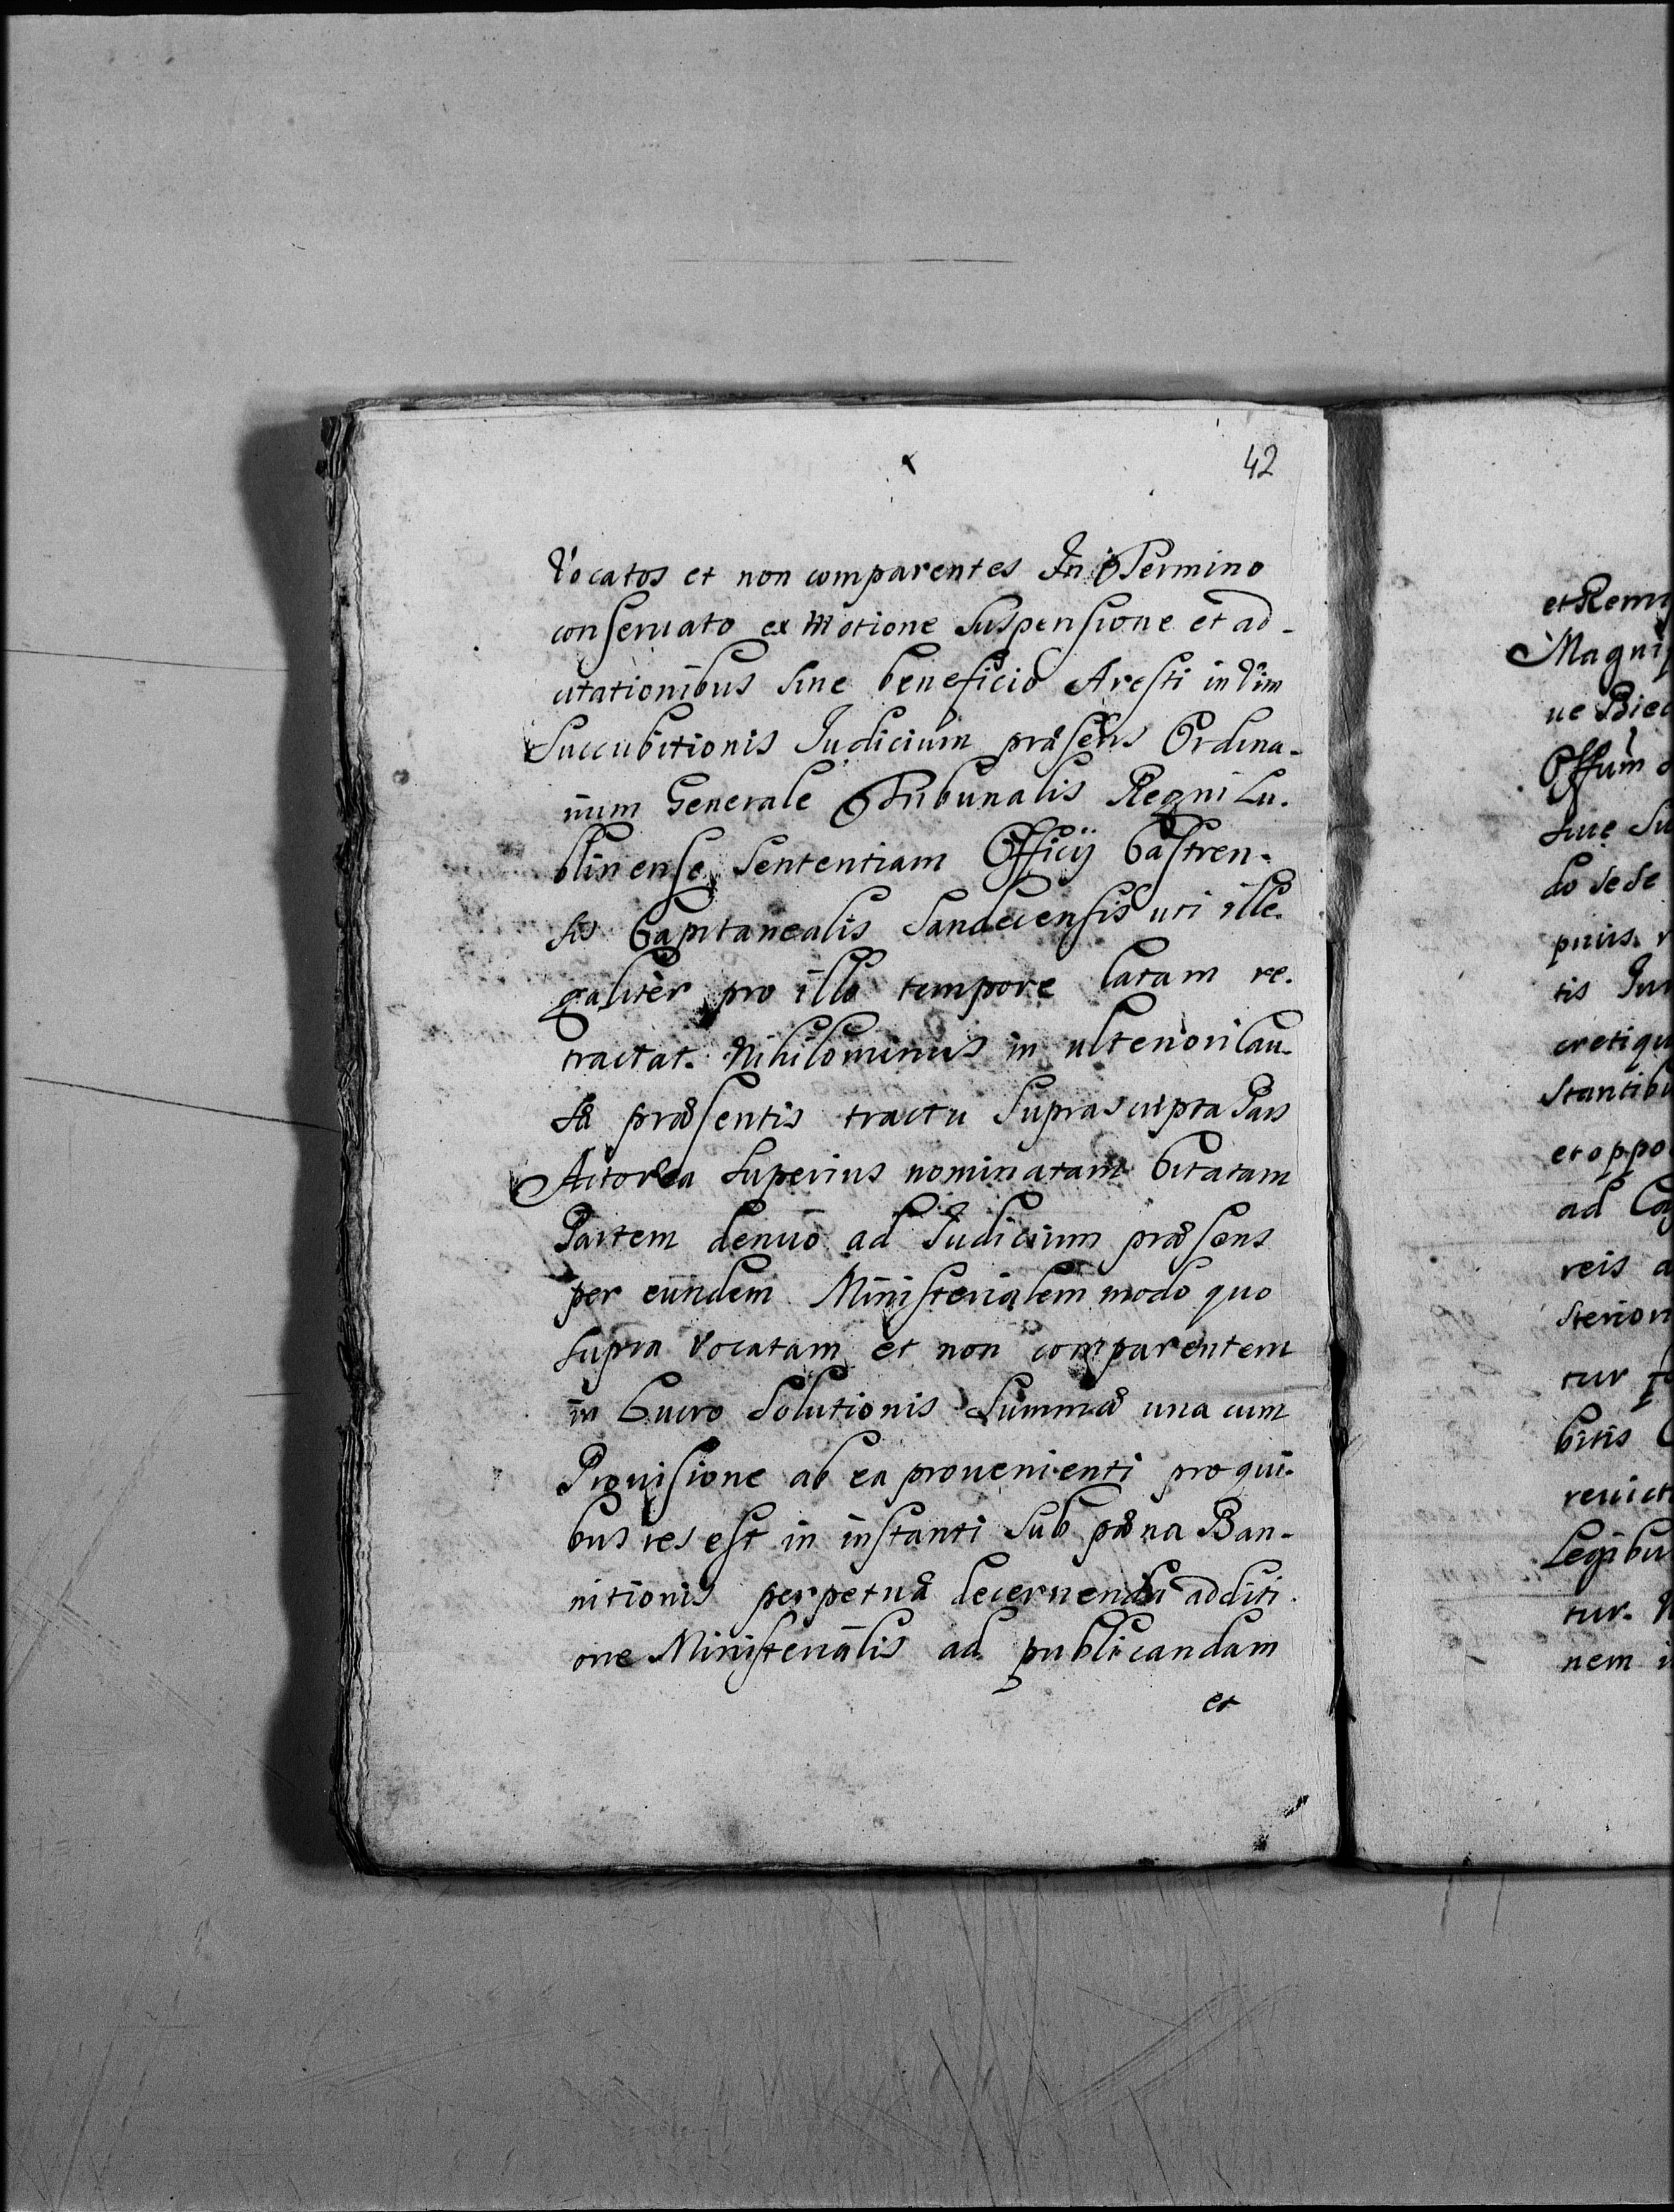 42
Vocatos et non comparentes In Termino
conservato ex Motione Suspensione et ad-
citationibus sine beneficio Aresti in Vim
Succubitionis Judicium præsens Ordina-
rium Generale Tribunalis Regni Lu-
blinense Sententiam Officij Castren-
sis Capitanealis Sandecensis uti ille-
galiter pro illo tempore latam re-
tractat. Nihilominus in ulteriori Cau-
sæ præsentis tractu Suprascripta Pars
Actorea superius nominatam Citatam
Partem denuo ad Judicium præsens
per eundem Ministerialem modo quo
supra vocatam et non comparentem
in Lucro Solutionis Summæ una cum
Provisione ab ea provenienti pro qui-
bus res est in instanti sub pœna Ban-
nitionis perpetuæ decernenda additi-
one Ministerialis ad publicandam
et
et Remi
Magni
ue Biec
Offum
suæ Su
do sese
prius
tis Jur
cretiqu
stantibu
et oppo
ad Ca
reis a
sterior
tur
bitis C
revict
Legibu
tur. N
nem i